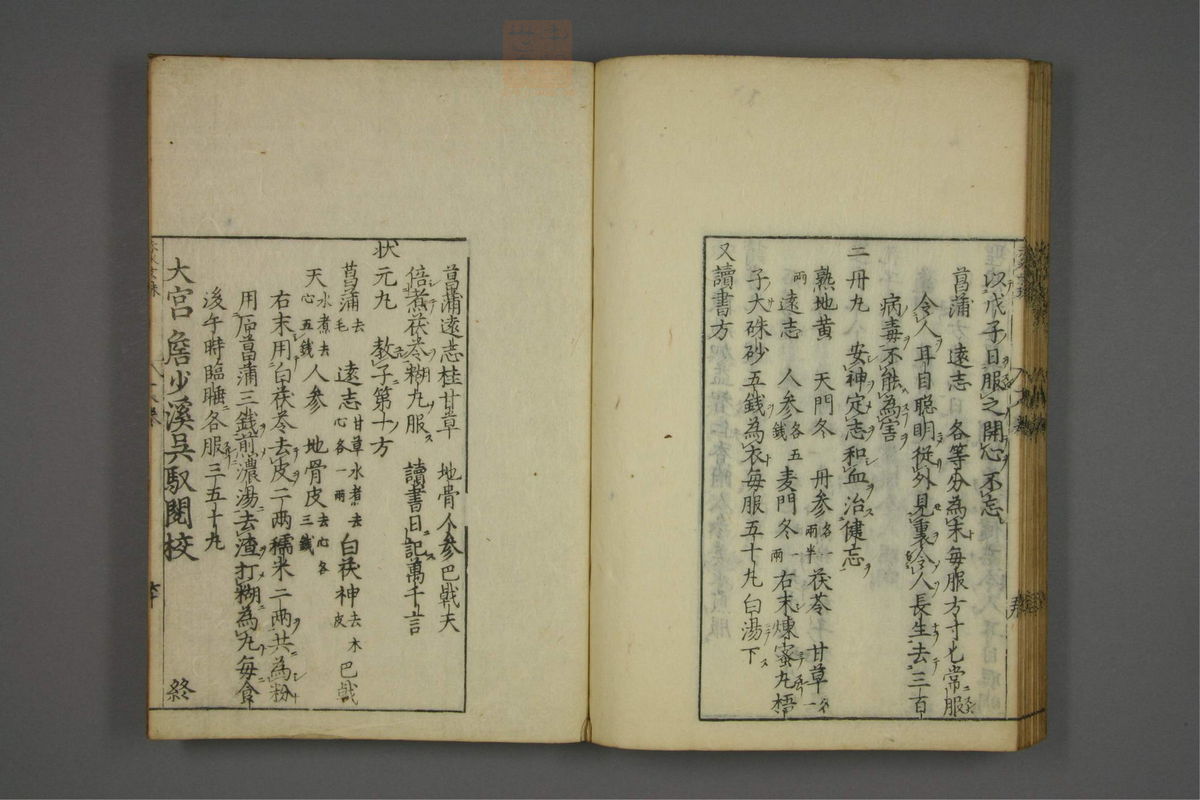 以戊子日服之開心不忘
菖蒲 遠志 各等分為末每服方寸匕常服
令人耳目聡明従外見裏令人長生去三百
病毒不能為害
二丹丸 安神定志和血治健忘
熟地黄 天門冬 丹参各一両半 茯苓 甘草各一
両 遠志 人参各五銭 麦門冬一両 右末煉蜜丸梧
子大硃砂五銭為衣每服五十丸白湯下
又讀書方
菖蒲遠志桂甘草 地骨人参巴戟天
倍煮茯苓糊丸服 讀書日記萬千言
状元丸 教子第十方
菖蒲去毛 遠志甘草水煮去心各一両 白茯神去木皮 巴戟
天水煮去心五銭 人参 地骨皮去心各三銭
右末用白茯苓去皮二両糯米二両共為粉
用石菖蒲三銭煎濃湯去渣打糊為丸每食
後午時臨睡各服三五十丸
大宮詹少溪呉馭閲校 終